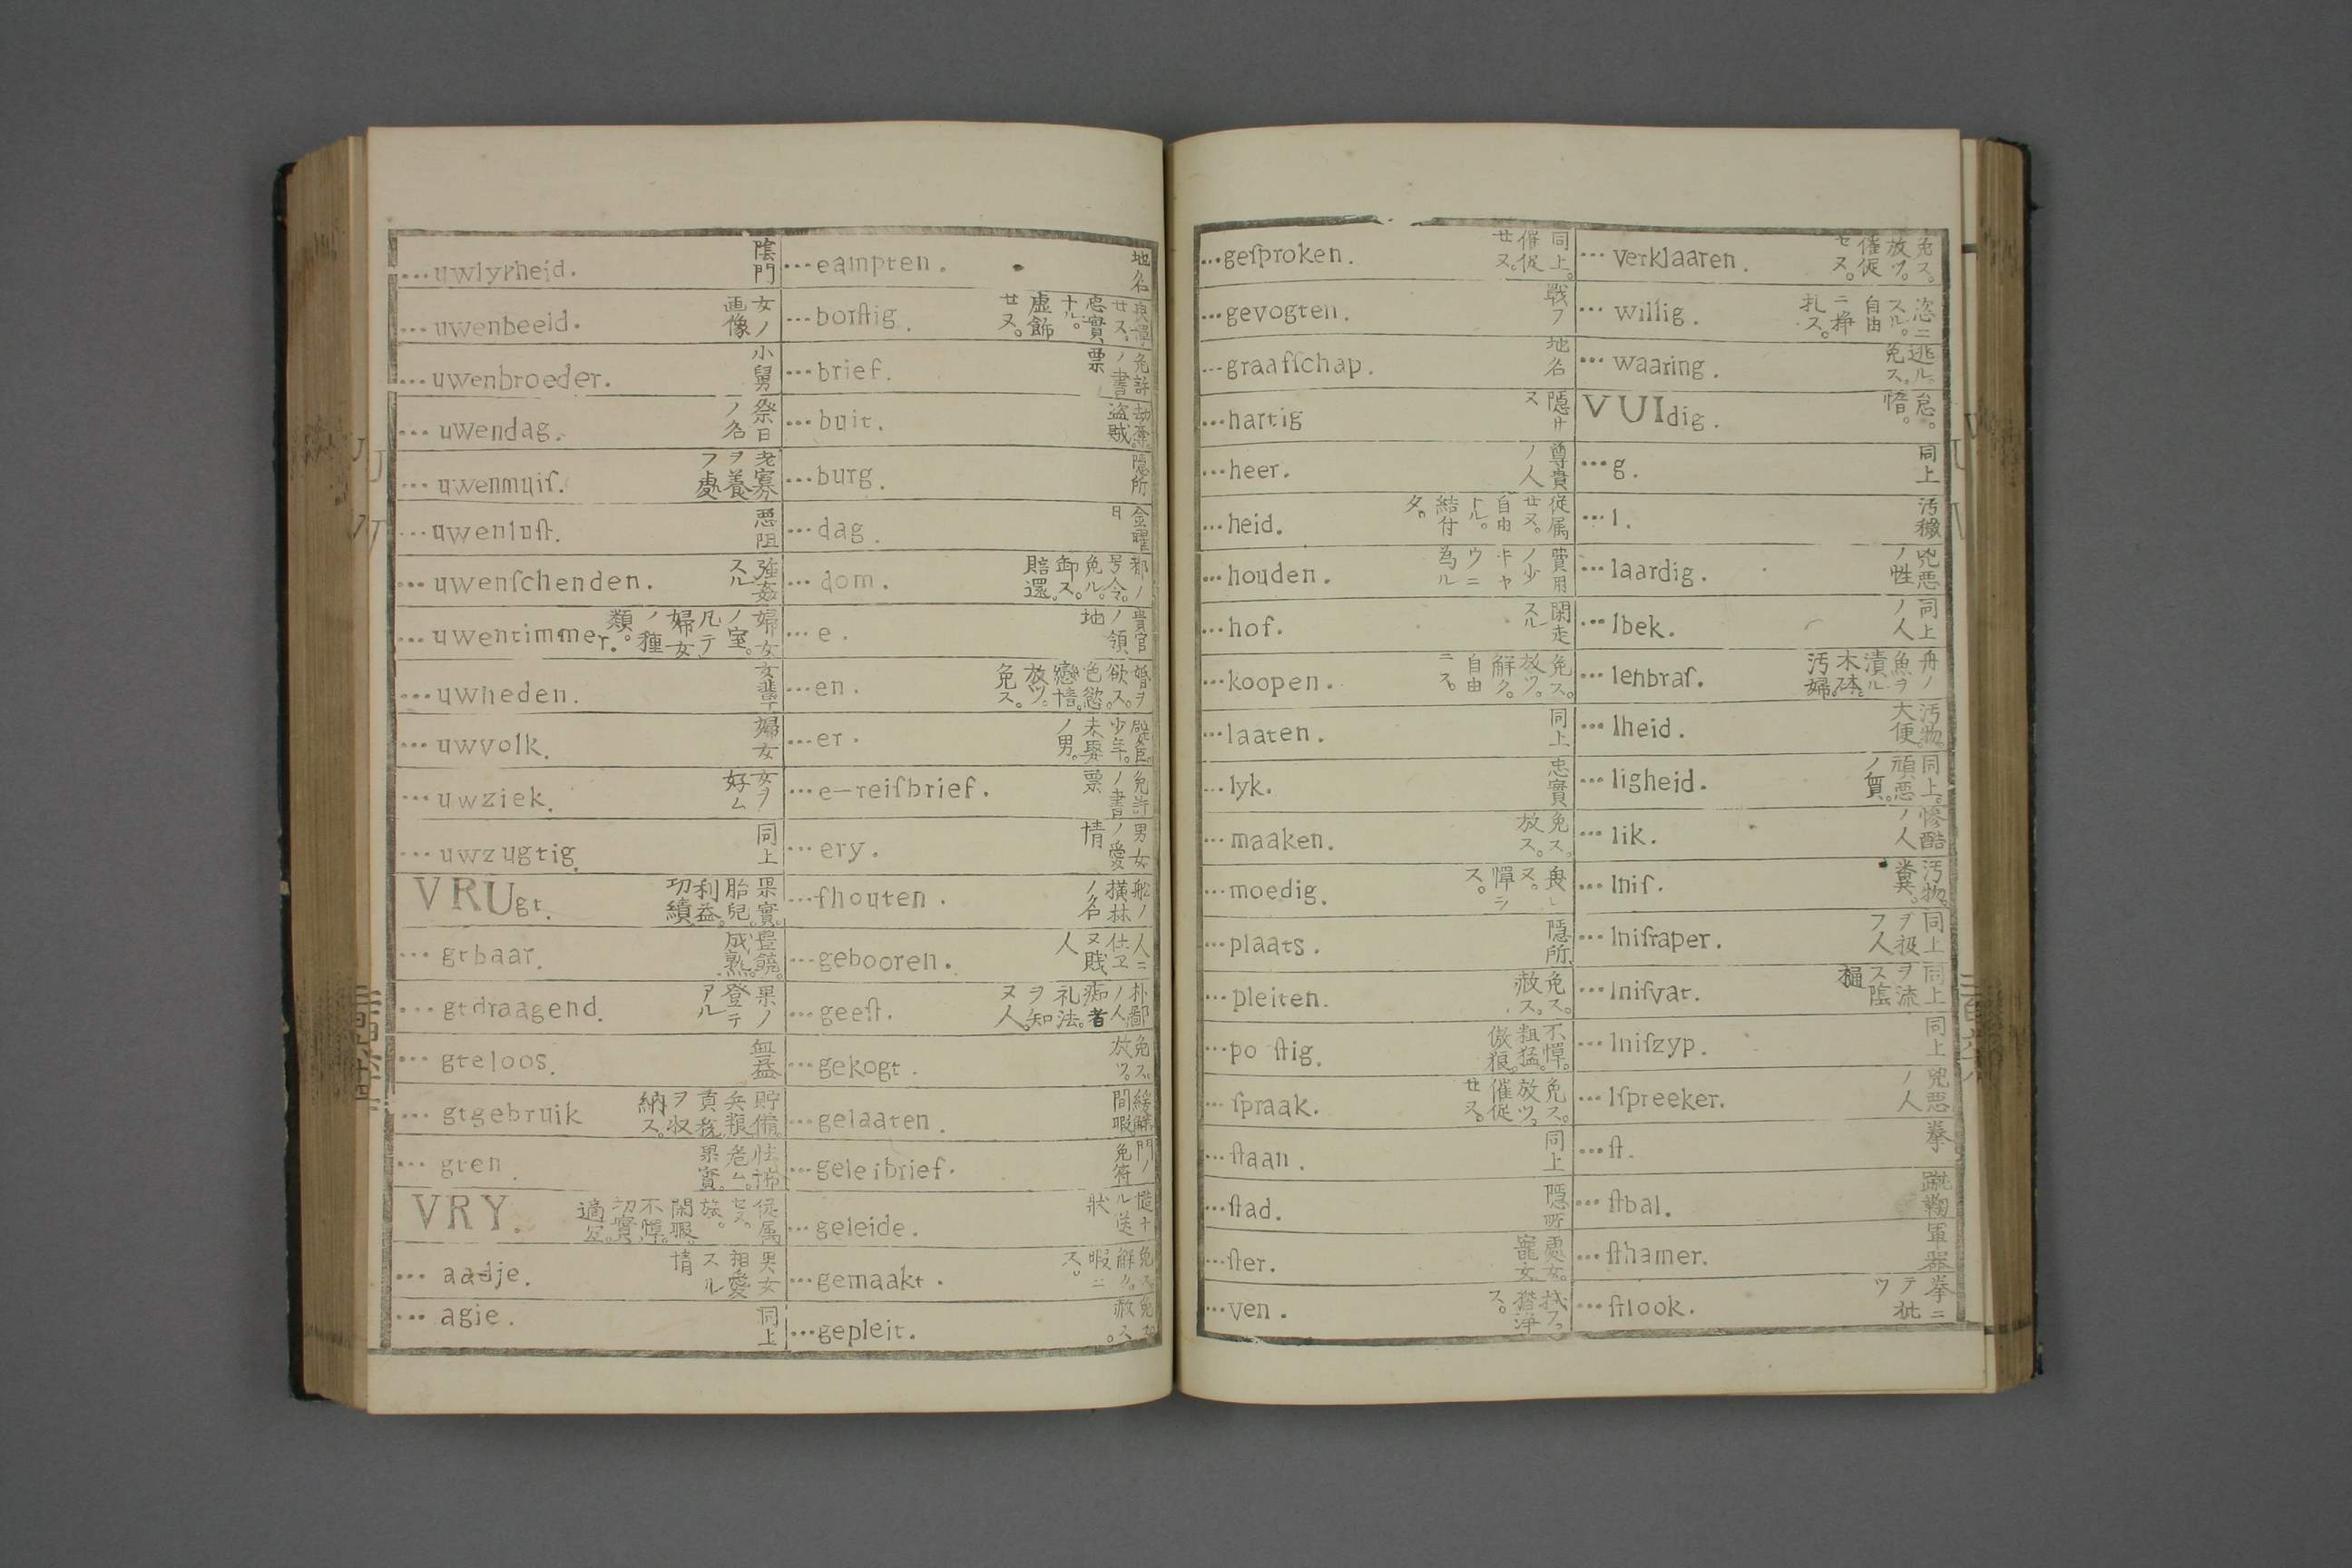 ...uwlyrheid. 陰門
...uwenbeeld. 女ノ画像
...uwenbroeder. 小舅
...uwendag. 祭日ノ名
...uwenmuiſ. 老寡ヲ養フ處
...uwenluſt. 悪阻
...uwenſchenden. 強姦スル
...uwentimmer. 婦女ノ室。凡テ婦女ノ種類。
...uwheden. 女輩
...uwvolk. 婦女
...uwziek. 女ヲ好ム
...uwzugtig. 同上
VRUgt. 果實。胎兒。利益。功績
...gtbaar. 豊饒。成熟。
...gtdraagend. 果ノ登テアル
...gteloos. 無益
...gtgebruik 貯備。兵粮ヲ収納ス。
...gten 果實。
VRY. 従属セヌ。旅。閑暇。不憚。切實。適宜。
...aadje. 男女相愛スル情
...agie. 同上
...eampten. 地名
...borſtig. 畏憚セヌ。忠實ナル。虚飾セヌ。
...brief. 免許ノ書票
...buit. 劫奪。盗賊
...burg. 隠所
...dag. 金曜日
...dom. 郡ノ号令。免ル。卸ス。賠還。
...e. 貴官ノ領地
...en. 婚ヲ欲ス。色慾。戀情。放ツ。免ス。
...er. 少年。未娶ノ男。
...e—reiſbrief. 免許ノ書票
...ery. 男女ノ愛情
...fhouten. 舩ノ横林ノ名
...gebooren. 人ニ仕ヱヌ賎人
...geeſt. 朴鄙ノ人。痴者。礼法ヲ知ヌ人。
...gekogt. 免ス。放ツ。
...gelaaten. 緩解。間暇
...geleibrief. 門ノ免符
...geleide. 慥ナル送状
...gemaakt. 免ス。解ク。暇ニス。
...gepleit. 免ス。赦ス。
...geſproken. 同上。催促セヌ。
...gevogten. 戦フ
...graafſchap. 地名
...hartig 隠サヌ
...heer. 尊貴ノ人
...heid. 従属セヌ。自由トル。結付タ。
...houden. 費用ノ少キヤウニ為ル
...hof. 閑走スル
...koopen. 免ス。放ツ。解ク。自由ニス。
...laaten. 同上
...lyk. 忠實
...maaken. 免ス。放ス。
...moedig. 畏レヌ。憚ラス。
...plaats. 隠所
...pleiten. 免ス。赦ス。
...poſtig. 不憚。粗猛。傲狼。
...ſpraak. 免ス。放ツ。催促セヌ。
...ſtaan. 同上
...ſtad. 隠所
...ſter. 處女。寵女。
...ven. 拭フ。揩浄ス。
...verklaaren. 免ス。放ツ。催促セヌ。
...willig. 恣ニスル。自由ニ
...waaring. 逃ル。免ス。
VUIdig. 怠。惰。
...g. 同上
...l. 汚穢
...laardig. 兇悪ノ性
...lbek. 同上ノ人
...lenbraſ. 舟ノ魚ヲ漬ル木砵。汚婦。
...lheid. 汚物。大便。
...ligheid. 同上。頑悪ノ質。
...lik. 惨酷ノ人
...lniſ. 汚物。糞。
...lniſraper. 同上ヲ扱フ人
...lniſvat. 同上ヲ流ス陰桶
...lniſzyp. 同上
...lſpreeker. 兇悪ノ人
...ſt. 拳
...ſtbal. 蹴鞠
...ſthamer. 軍器
...ſtlook. 拳ニテ批ツ